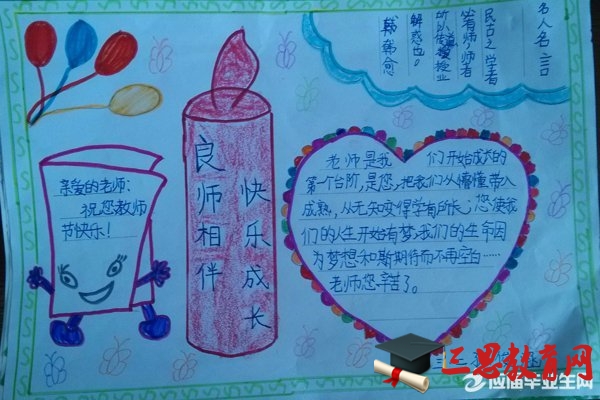 名人名言
民古之学者
必有师,师者
所以传道授业
解惑也。
韩韩愈
良师相伴
快乐成长
亲爱的老师:
祝您教师
节快乐!
老师是我们开始成长的
第一个台阶,是您,把我们从懵懂带入
成熟,从无知变得学有所长;您使我
们的人生开始有梦,我们的生命因
为梦想和斯期待而不再空白……
老师您辛苦了。
三思教育网
应届毕业生网